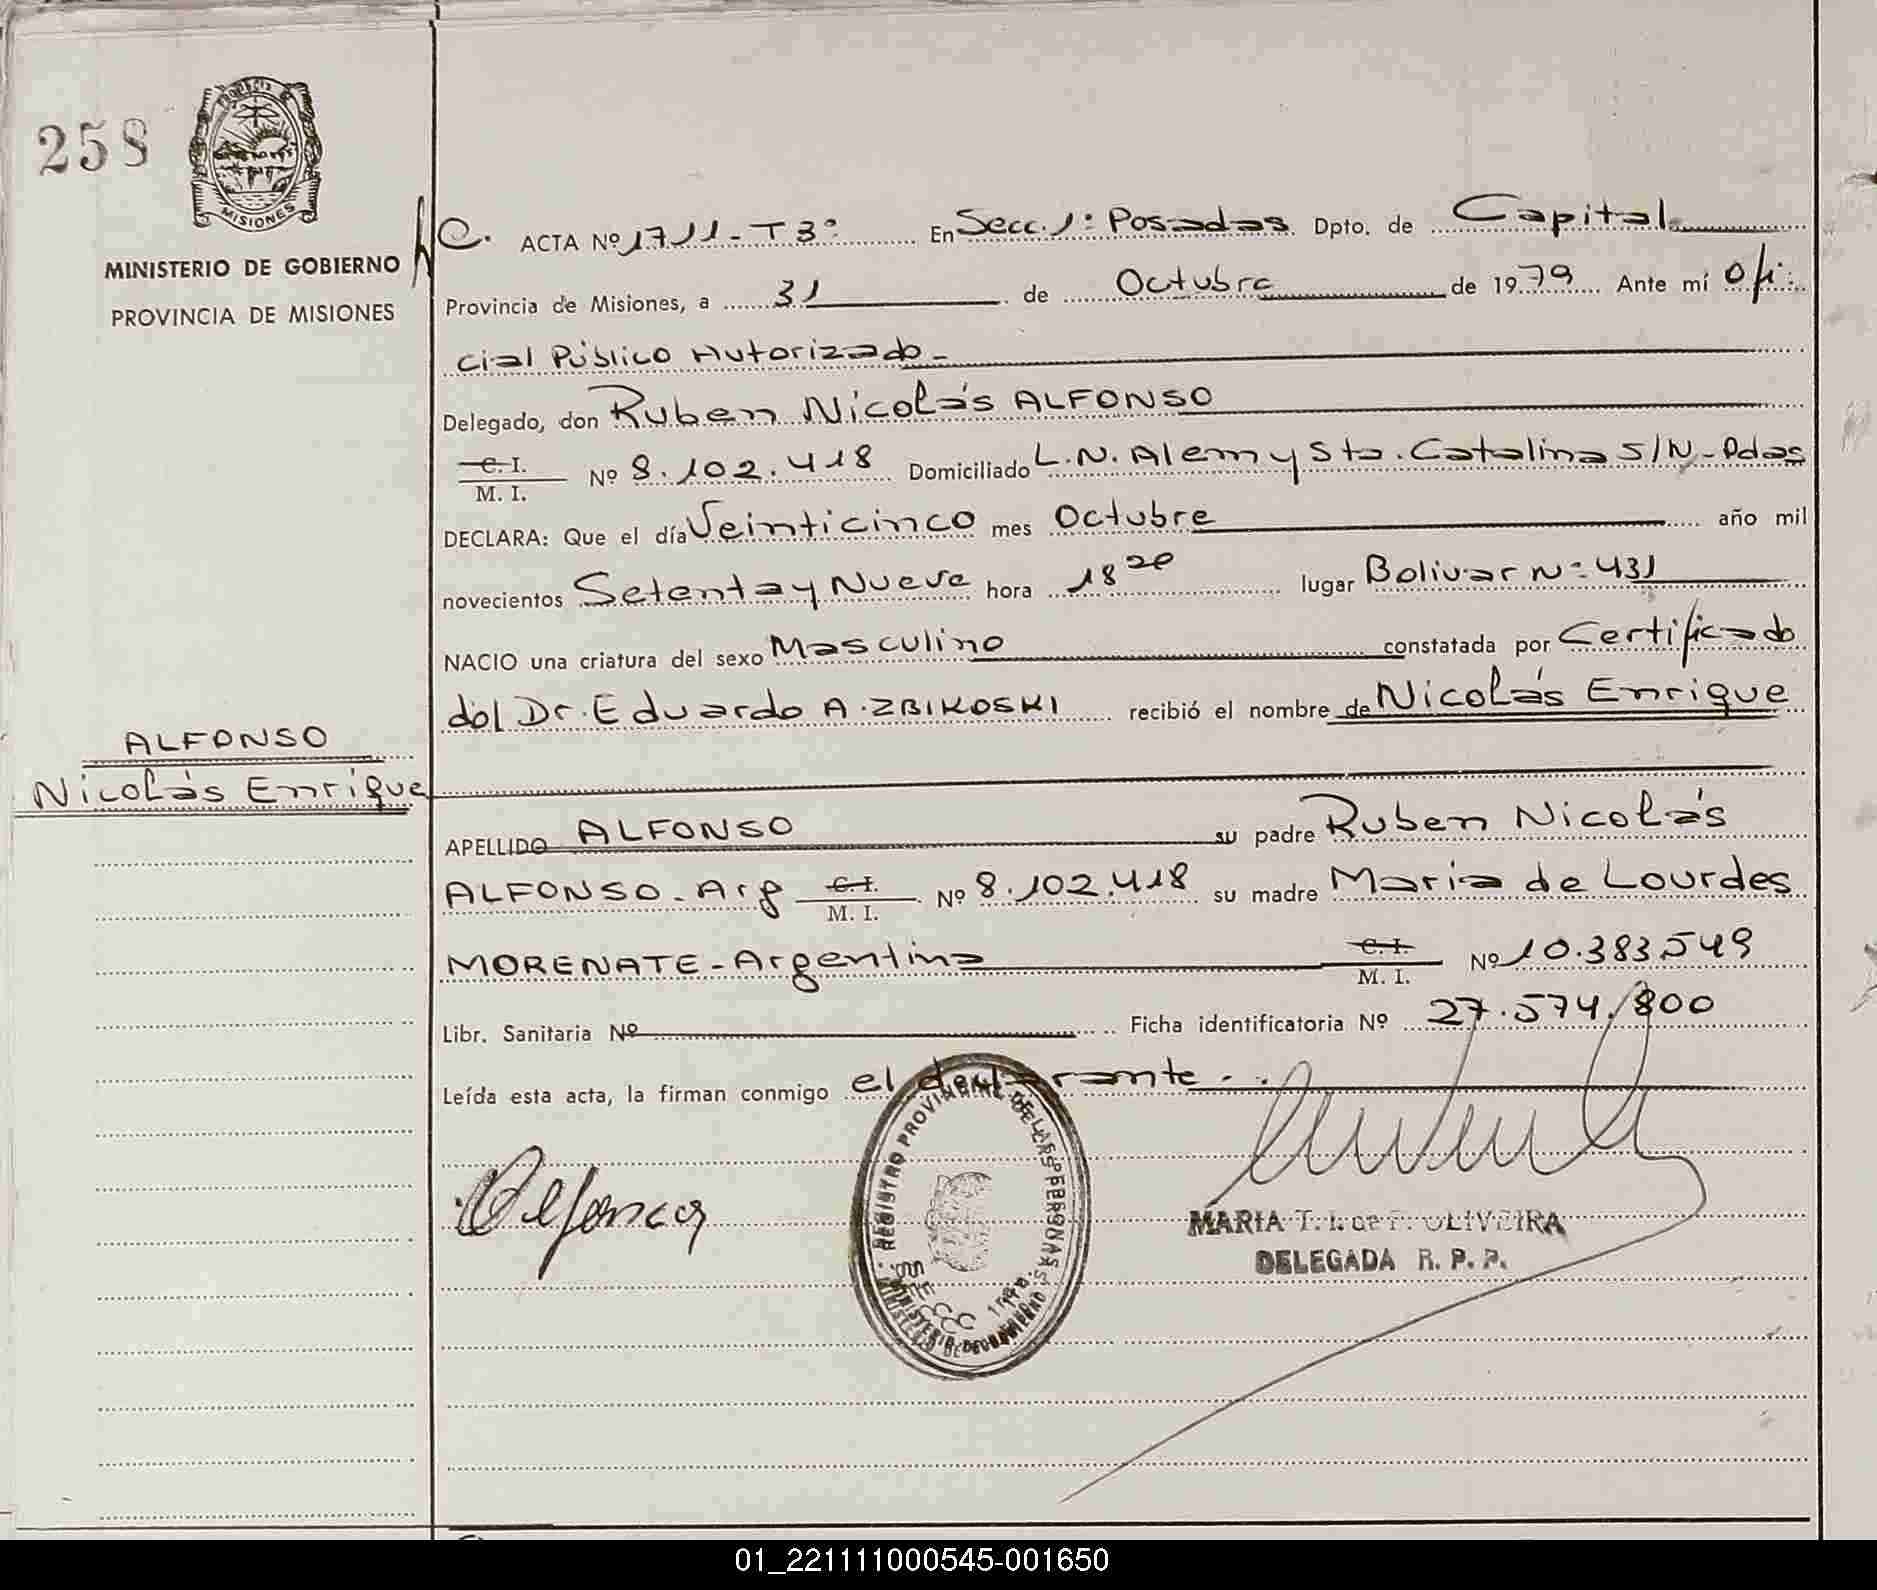 258
MISIONES
MINISTERIO DE GOBIERNO
PROVINCIA DE MISIONES
ALFONSO
Nicolás Enrique
C. ACTA Nº 1711-T3º En Secc. 1: Posadas Dpto. de Capital
Provincia de Misiones, a 31 de Octubre de 1979 Ante mí Ofi-
cial Público Autorizado-
Delegado, don Ruben Nicolás ALFONSO
C. I. / M. I. Nº 8.102.418 Domiciliado L.N. Alem y Sta. Catalina S/N-Pdas
DECLARA: Que el día Veinticinco mes Octubre año mil
novecientos Setenta y Nueve hora 18 20 lugar Bolivar Nº 431
NACIO una criatura del sexo Masculino constatada por Certificado
del Dr. Eduardo A. ZBIKOSKI recibió el nombre de Nicolás Enrique
APELLIDO ALFONSO su padre Ruben Nicolás
ALFONSO-Arg C. I. / M. I. Nº 8.102.418 su madre Maria de Lourdes
MORENATE-Argentina C. I. / M. I. Nº 10.383.549
Libr. Sanitaria Nº Ficha identificatoria Nº 27.574.800
Leída esta acta, la firman conmigo el declarante-.
REGISTRO PROVINCIAL DE LAS PERSONAS
MINISTERIO DE GOBIERNO
SECC 1ra.
MARIA T. I. de F. OLIVEIRA
DELEGADA R. P. P.
01_221111000545-001650